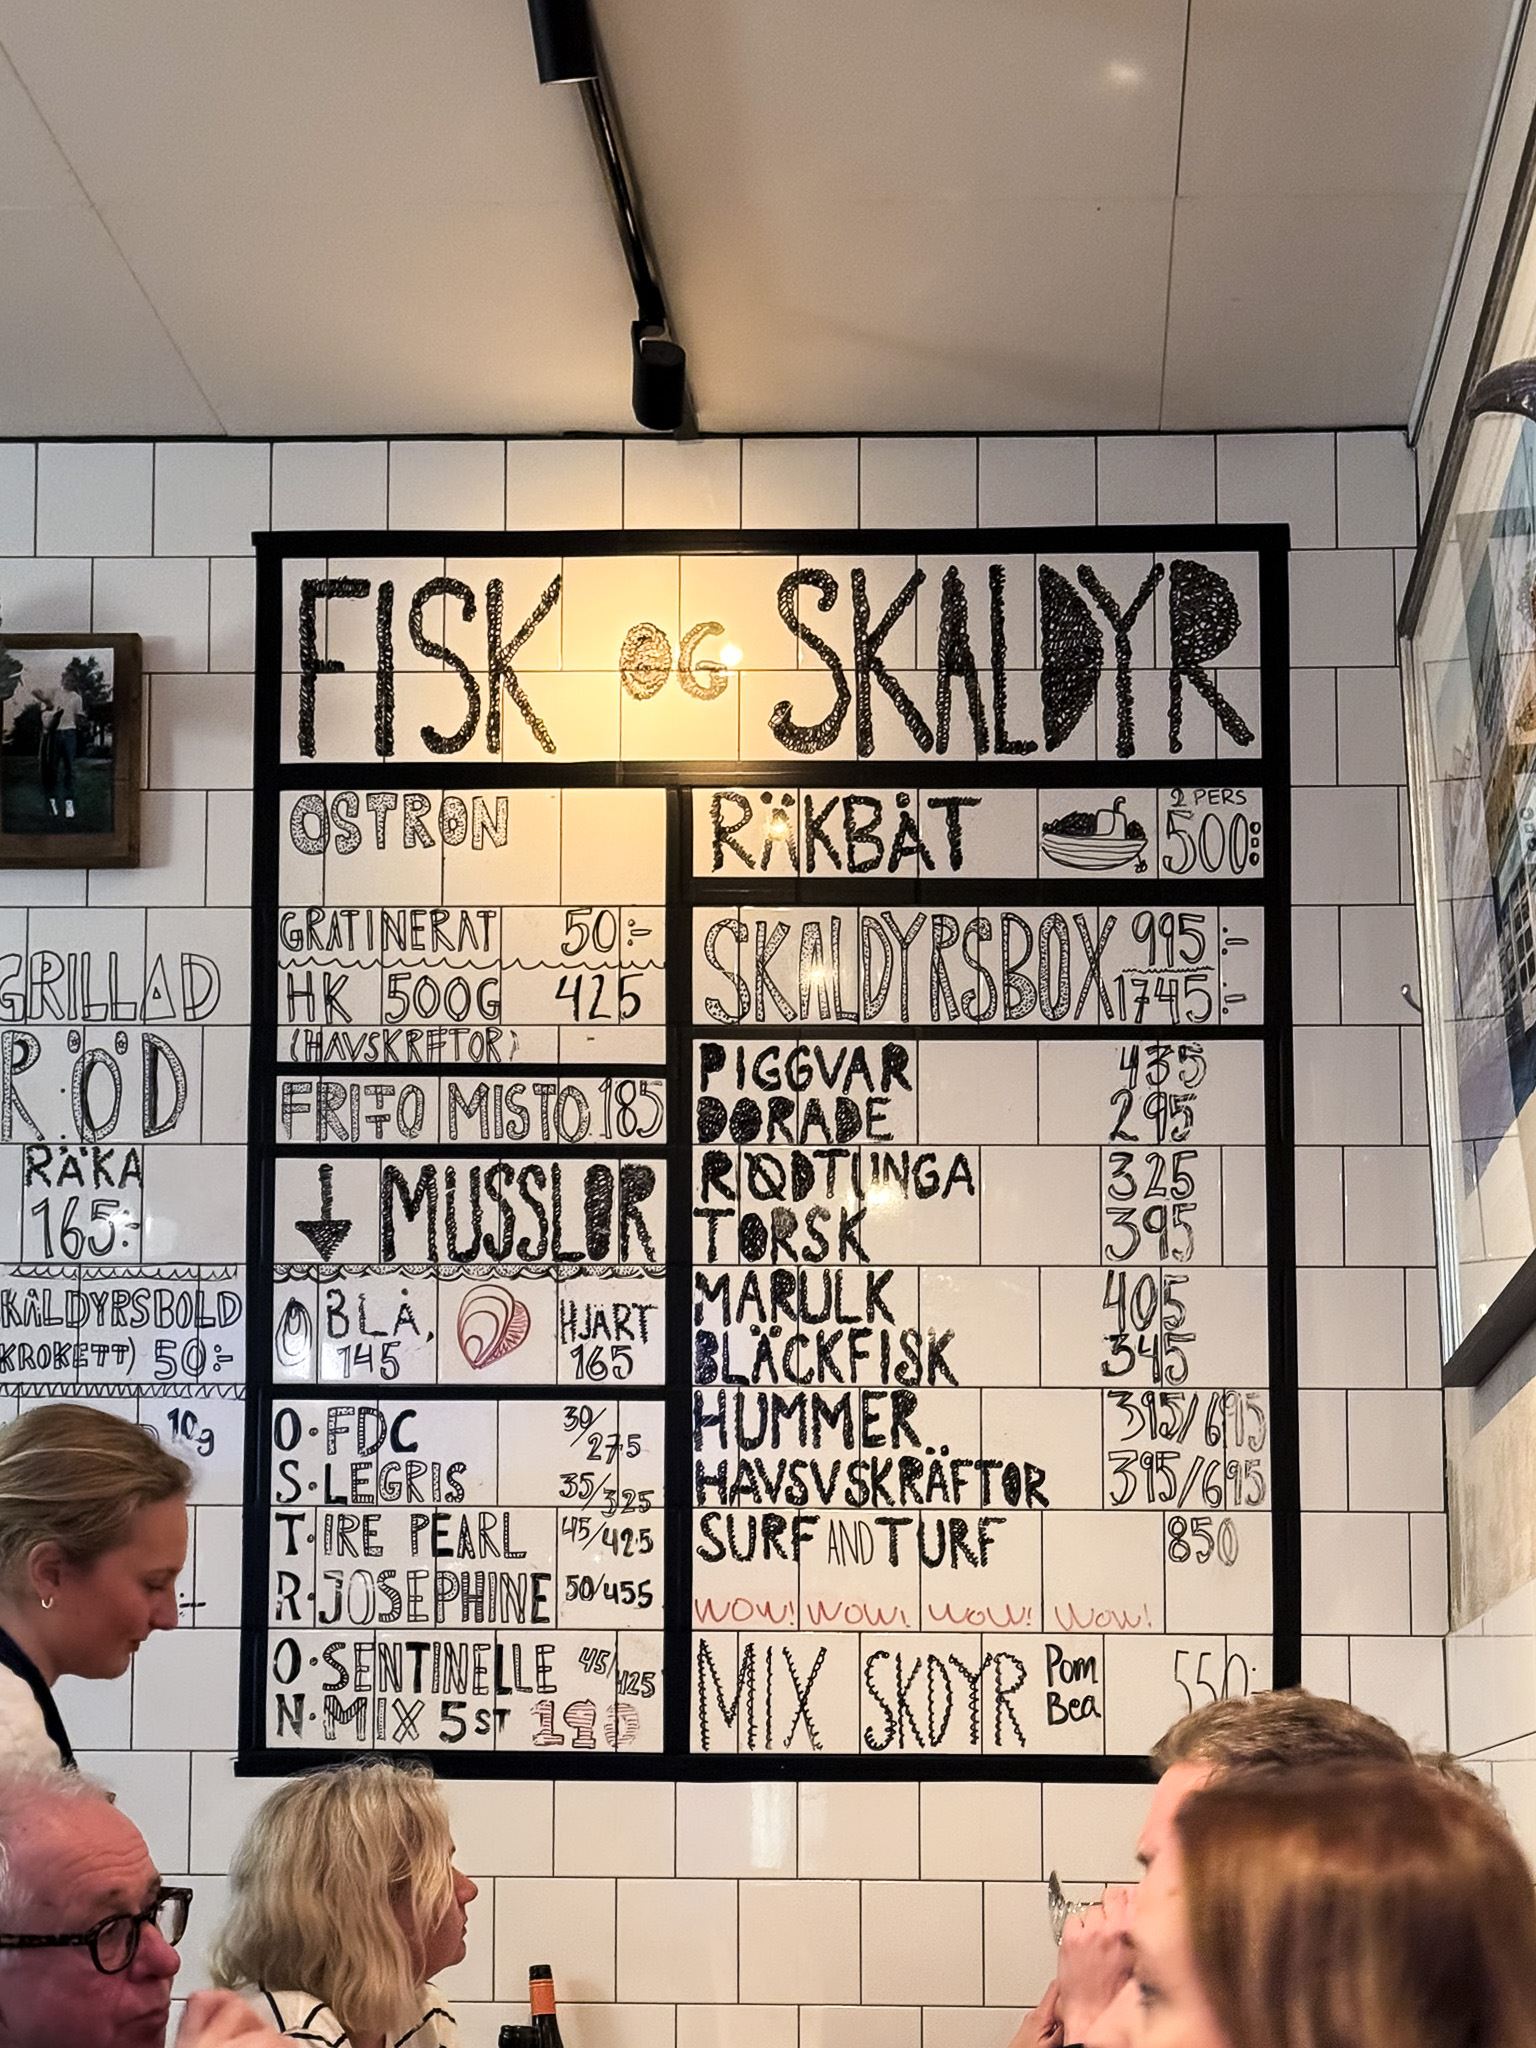 FISK OG SKALDYR
OSTRON
GRATINERAT 50:-
HK 500G 425
(HAVSKRFTOR)
FRITO MISTO 185
MUSSLOR
BLÅ, 145
HJÄRT 165
O. FDC 30/275
S. LEGRIS 35/325
T. IRE PEARL 45/425
R. JOSEPHINE 50/455
O. SENTINELLE 45/425
N. MIX 5 ST 190
RÄKBÅT 2 PERS 500:
SKALDYRSBOX 995:-
1745:-
PIGGVAR 435
DORADE 295
RØDTUNGA 325
TORSK 395
MARULK 405
BLÄCKFISK 345
HUMMER 395/695
HAVSVSKRÄFTOR 395/695
SURF AND TURF 850
WOW! WOW! WOW! WOW!
MIX SKDYR Pom Bea 550:-
GRILLAD
RÖD
RÄKA
165:-
KALDYRSBOLD
KROKETT) 50:-
10g